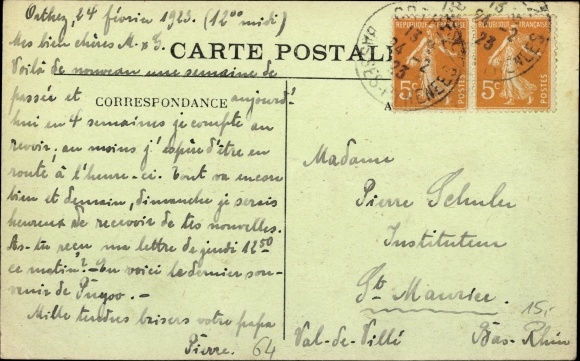 Orthez, 24 février 1923. (12⁰⁰ midi)
Mes bien chères M. & G.
CARTE POSTALE
Voilà de nouveau une semaine de
passée et aujourd'
CORRESPONDANCE
hui en 4 semaines je compte au
revoir. au moins j'espère d'être en
route à l'heure-ci. Tout va encore
bien et demain, dimanche je serais
heureux de recevoir de tes nouvelles.
As-tu reçu ma lettre de jeudi 12⁵⁰
ce matin? - En voici le dernier sou-
venir de Puyoo. -
Mille tendres baisers votre papa
Pierre.
64
RÉPUBLIQUE FRANÇAISE
5c
POSTES
RÉPUBLIQUE FRANÇAISE
5c
POSTES
24 -2
23
Madame
Pierre Schuler
Instituteur
St Maurice.
Val-de-Villé Bas-Rhin
15,-